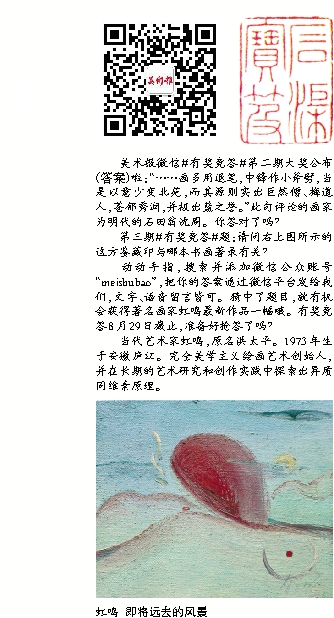 美術報
石渠
寶笈
美术报微信#有奖竞答#第二期大奖公布
(答案)啦:“……画多用退笔,中锋作小斧劈,当
是以意少变北苑,而其源则实出巨然僧、梅道
人,苍郁秀润,并极出蓝之誉。”此句评论的画家
为明代的石田翁沈周。你答对了吗?
第三期#有奖竞答#题:请问右上图所示的
这方鉴藏印与哪本书画著录有关?
动动手指,搜索并添加微信公众账号
“meishubao”,把你的答案通过微信平台发给我
们,文字、语音留言皆可。猜中了题目,就有机
会获得著名画家虹鸣最新作品一幅哦。有奖竞
答8月29日截止,准备好抢答了吗?
当代艺术家虹鸣,原名洪太平。1973年生
于安徽庐江。完全美学主义绘画艺术创始人,
并在长期的艺术研究和创作实践中探索出异质
同维素原理。
虹鸣 即将远去的风景